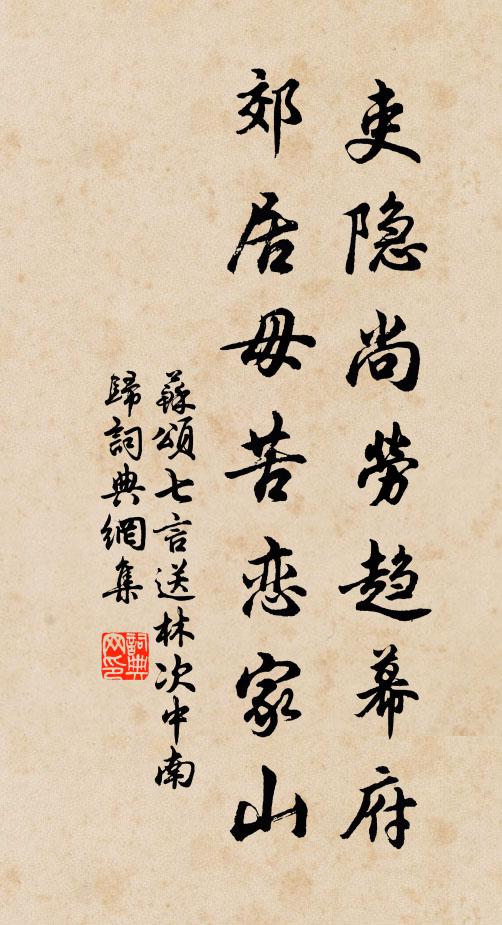 吏隐尚劳趋幕府
郊居毋苦恋家山
蘇頌七言送林次中南
歸詞典網集
詞典网印